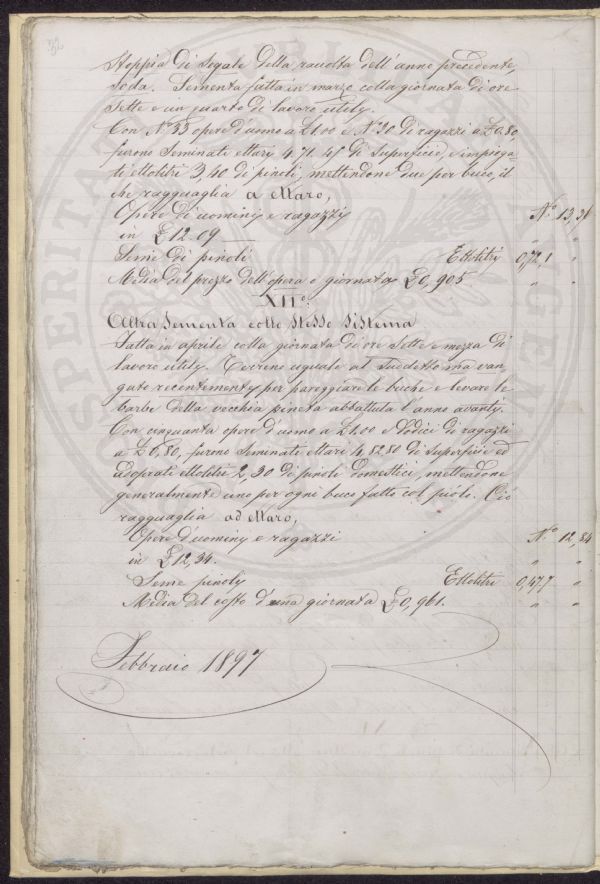 Stoppia di segale della raccolta dell'anno precedente,
soda. Sementa fatta in marzo colla giornata di ore
sette e un quarto di lavoro utily.
Con N.° 33 opere d'uomo a £1.00 e N.° 30 di ragazzi a £0,80
furono seminate ettari 4.71.45 di superficie, e impiega-
ti ettolitri 3,40 di pinoli, mettendone due per buco, il
che ragguaglia a ettaro,
Opere di uominy e ragazzi N.° 13,36
in £12.09 " "
Seme di pinoli Ettolitri 0,72,1 "
Media del prezzo dell'opera e giornata £0,905. " "
XII°.
Altra Sementa collo Stesso Sistema
Fatta in aprile colla giornata di ore sette e mezza di
lavoro utily. Terreno uguale al suddetto ma van-
gato recentementy per pareggiare le buche e levare le
barbe della vecchia pineta abbattuta l'anno avanti.
Con cinquanta opere d'uomo a £1.00 e dodici di ragazzi
a £0,80, furono seminate ettari 4.82.80 di superficie ed
adoprati ettolitri 2,30 di pinoli domestici, mettendone
generalmente uno per ogni buco fatto col pióli. Ciò
ragguaglia ad ettaro,
Opere d'uominy e ragazzi N.° 12,84
in £12,34. " "
Seme pinoly Ettolitri 0,47.7 "
Media del costo d'una giornata £0,961. " "
Febbraio 1897